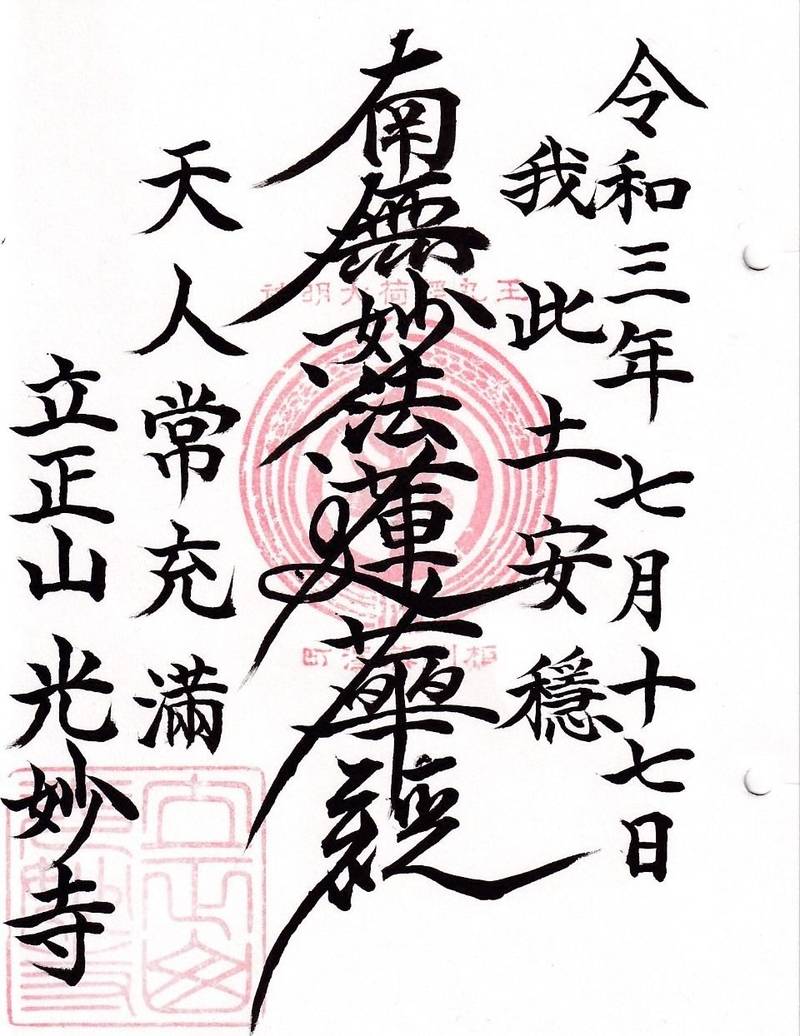 令和三年 七月十七日
我此土安穩
南無妙法蓮華経
天人常充滿
立正山 光妙寺